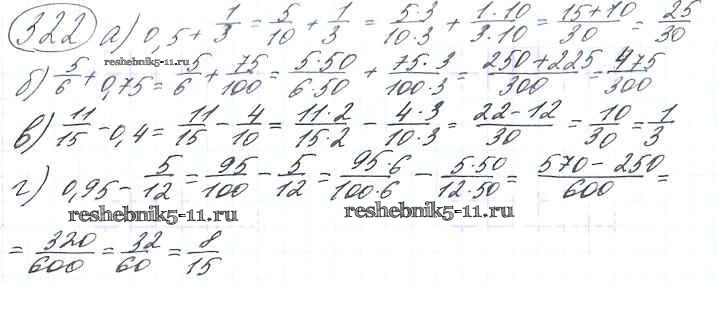 322 а) 0,5 + 1/3 = 5/10 + 1/3 = 5·3/10·3 + 1·10/3·10 = 15+10/30 = 25/30
reshebnik5-11.ru
б) 5/6 + 0,75 = 5/6 + 75/100 = 5·50/6·50 + 75·3/100·3 = 250+225/300 = 475/300
в) 11/15 - 0,4 = 11/15 - 4/10 = 11·2/15·2 - 4·3/10·3 = 22-12/30 = 10/30 = 1/3
г) 0,95 - 5/12 = 95/100 - 5/12 = 95·6/100·6 - 5·50/12·50 = 570-250/600 =
reshebnik5-11.ru reshebnik5-11.ru
= 320/600 = 32/60 = 8/15